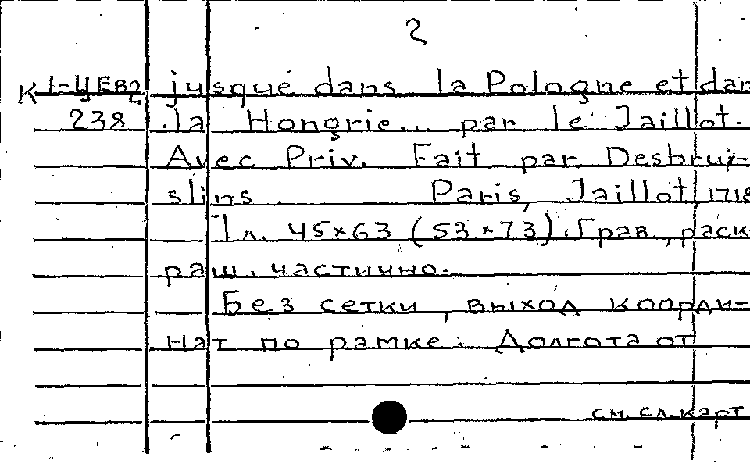 2
К 1-ЦЕвр jusque dans la Pologne et dan
238 la Hongrie... par le Jaillot.
Avec Priv. Fait par Desbrui-
slins Paris, Jaillot, 1718
1л. 45×63 (53×73). Грав., раск-
раш. частично.
Без сетки, выход коорди-
нат по рамке. Долгота от
см. сл. карт